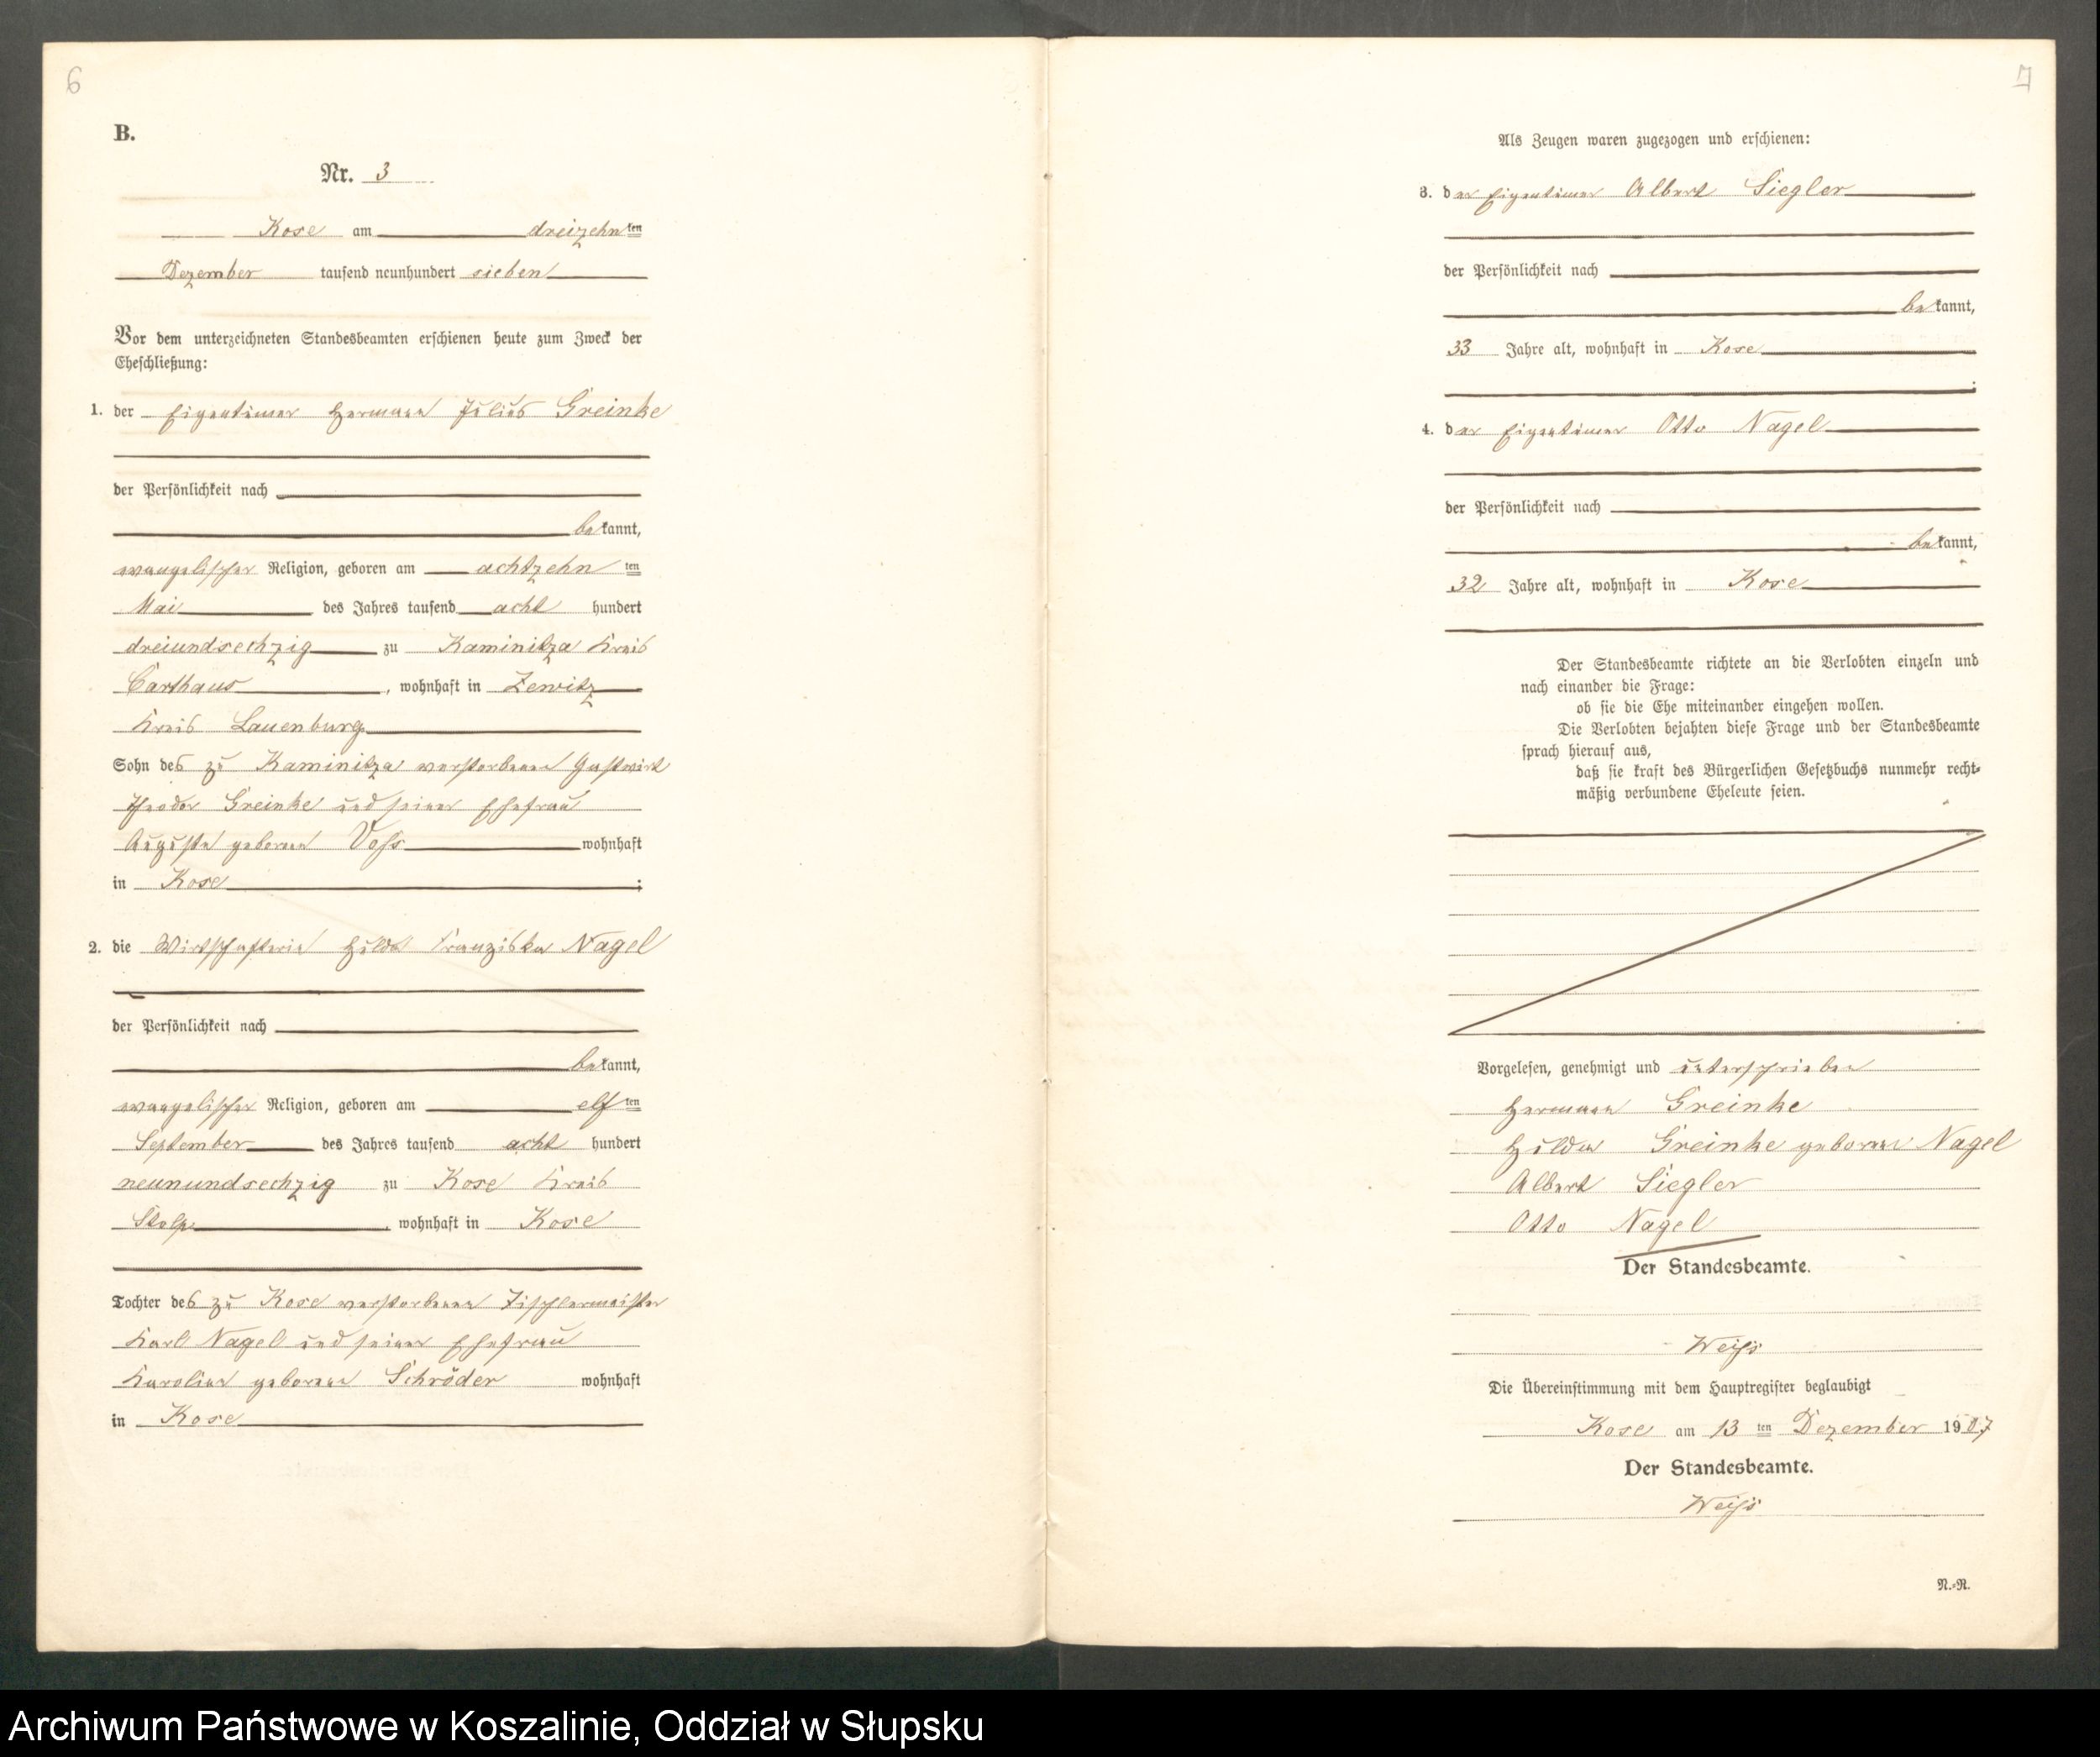 6
B.
Nr. 3
Kose am dreizehnten
Dezember tausend neunhundert sieben
Vor dem unterzeichneten Standesbeamten erschienen heute zum Zweck der
Eheschließung:
1. der Eigentümer Hermann Julius Greinke
der Persönlichkeit nach
bekannt,
evangelischer Religion, geboren am achtzehnten
Mai des Jahres tausend acht hundert
dreiundsechzig zu Kaminitza Kreis
Carthaus, wohnhaft in Zewitz
Kreis Lauenburg
Sohn des zu Kaminitza verstorbenen Gastwirt
Theodor Greinke und seiner Ehefrau
Auguste geborene Voß wohnhaft
in Kose;
2. die Wirtschafterin Hulda Franziska Nagel
der Persönlichkeit nach
bekannt,
evangelischer Religion, geboren am elften
September des Jahres tausend acht hundert
neunundsechzig zu Kose Kreis
Stolp, wohnhaft in Kose
Tochter des zu Kose verstorbenen Tischlermeister
Karl Nagel und seiner Ehefrau
Karoline geborene Schröder wohnhaft
in Kose
7
Als Zeugen waren zugezogen und erschienen:
3. der Eigentümer Albert Siegler
der Persönlichkeit nach
bekannt,
33 Jahre alt, wohnhaft in Kose
;
4. der Eigentümer Otto Nagel
der Persönlichkeit nach
bekannt,
32 Jahre alt, wohnhaft in Kose
Der Standesbeamte richtete an die Verlobten einzeln und
nach einander die Frage:
ob sie die Ehe miteinander eingehen wollen.
Die Verlobten bejahten diese Frage und der Standesbeamte
sprach hierauf aus,
daß sie kraft des Bürgerlichen Gesetzbuchs nunmehr recht-
mäßig verbundene Eheleute seien.
Vorgelesen, genehmigt und unterschrieben
Hermann Greinke
Hulda Greinke geborene Nagel
Albert Siegler
Otto Nagel
Der Standesbeamte.
Weiß
Die Übereinstimmung mit dem Hauptregister beglaubigt
Kose am 13ten Dezember 1907
Der Standesbeamte.
Weiß
N.-R.
Archiwum Państwowe w Koszalinie, Oddział w Słupsku